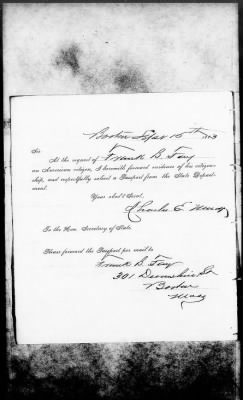 Boston
Sir
At the request of Frank B. Fay
an American citizen, I herewith forward evidence of his citizen-
ship, and respectfully solicit a Passport from the State Depart-
ment.
Your obd't Servt,
Charles E.
To the Hon. Secretary of State.
Please forward the Passport per mail to
Frank B. Fay
301 Devonshire St
Boston
Mass